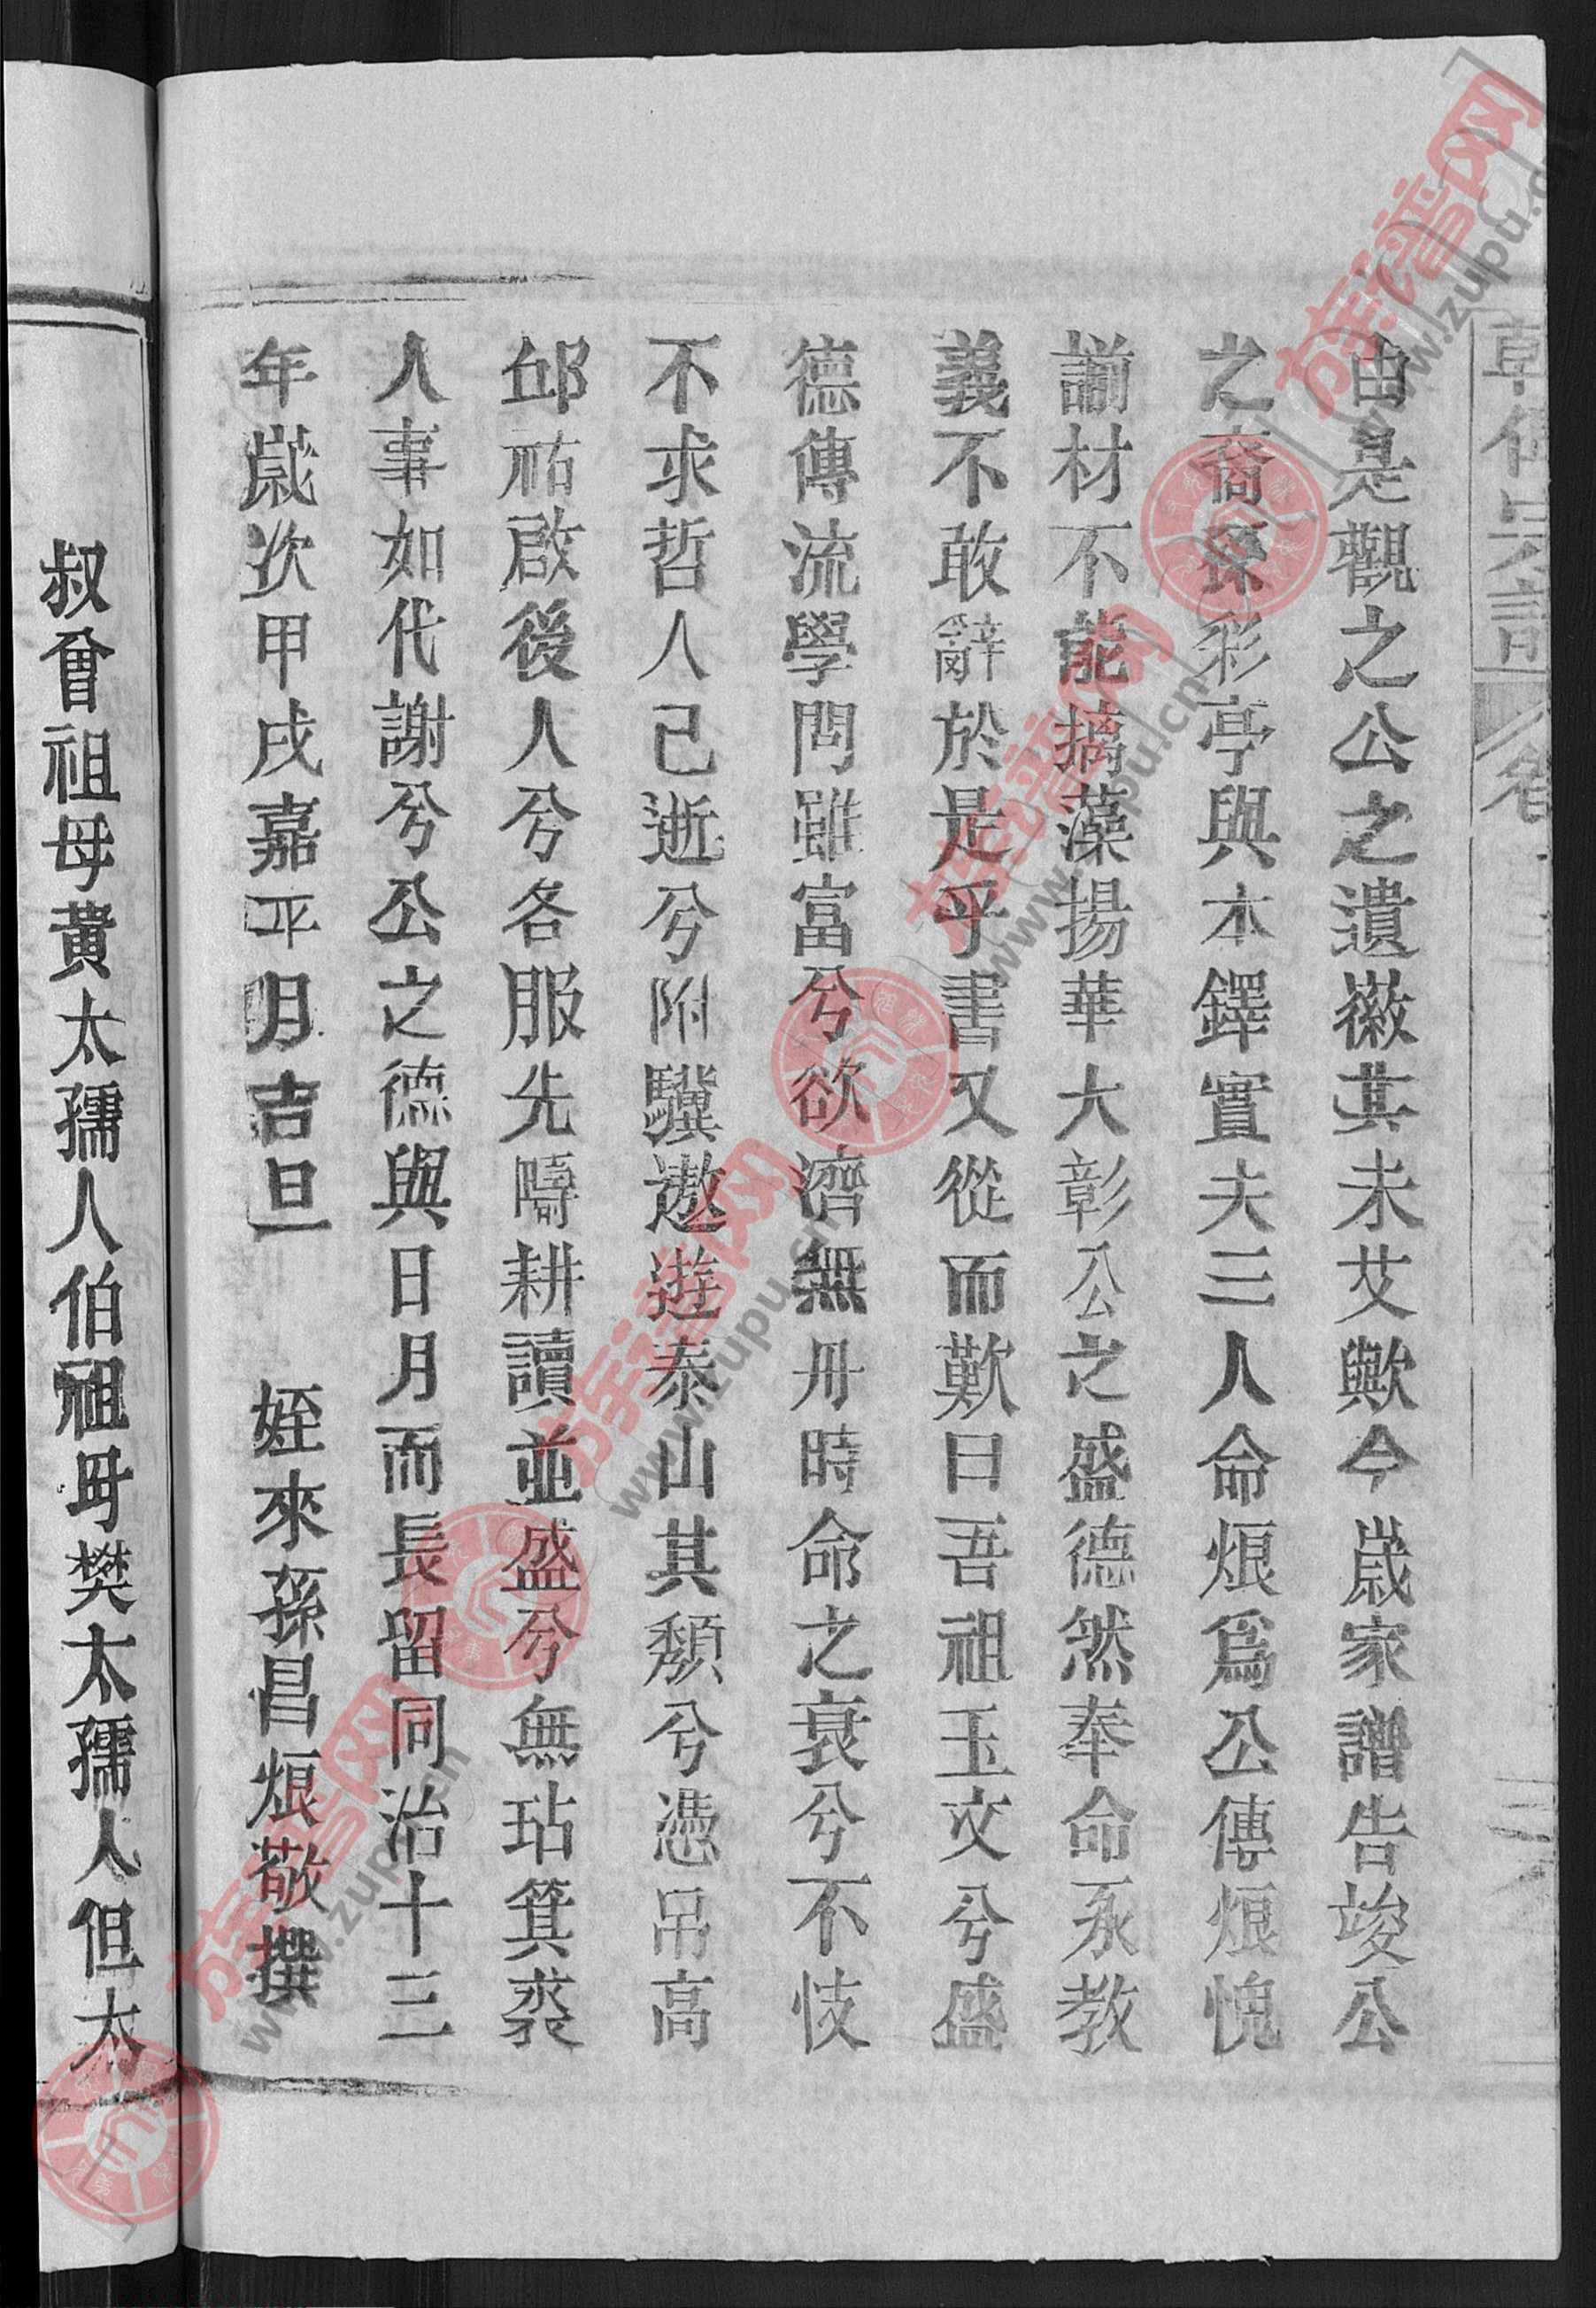 由是觀之公之遺徽其未艾歟今歲家譜告竣公
之裔孫彩亭與本鐸實夫三人命烺爲公傳烺愧
譾材不能摛藻揚華大彰公之盛德然奉命永教
義不敢辭於是乎書又從而歎曰吾祖玉文兮盛
德傳流學問雖富兮欲濟無舟時命之衰兮不忮
不求哲人已逝兮附驥遨遊泰山其頹兮憑吊高
邱祐啟後人兮各服先疇耕讀並盛兮無玷箕裘
人事如代謝兮公之德與日月而長留同治十三
年歲次甲戌嘉平月吉旦
姪來孫昌烺敬撰
叔曾祖母黃太孺人伯祖母樊太孺人但太
族谱网
www.zupu.cn
族谱网
www.zupu.cn
族谱网
www.zupu.cn
族谱网
www.zupu.cn